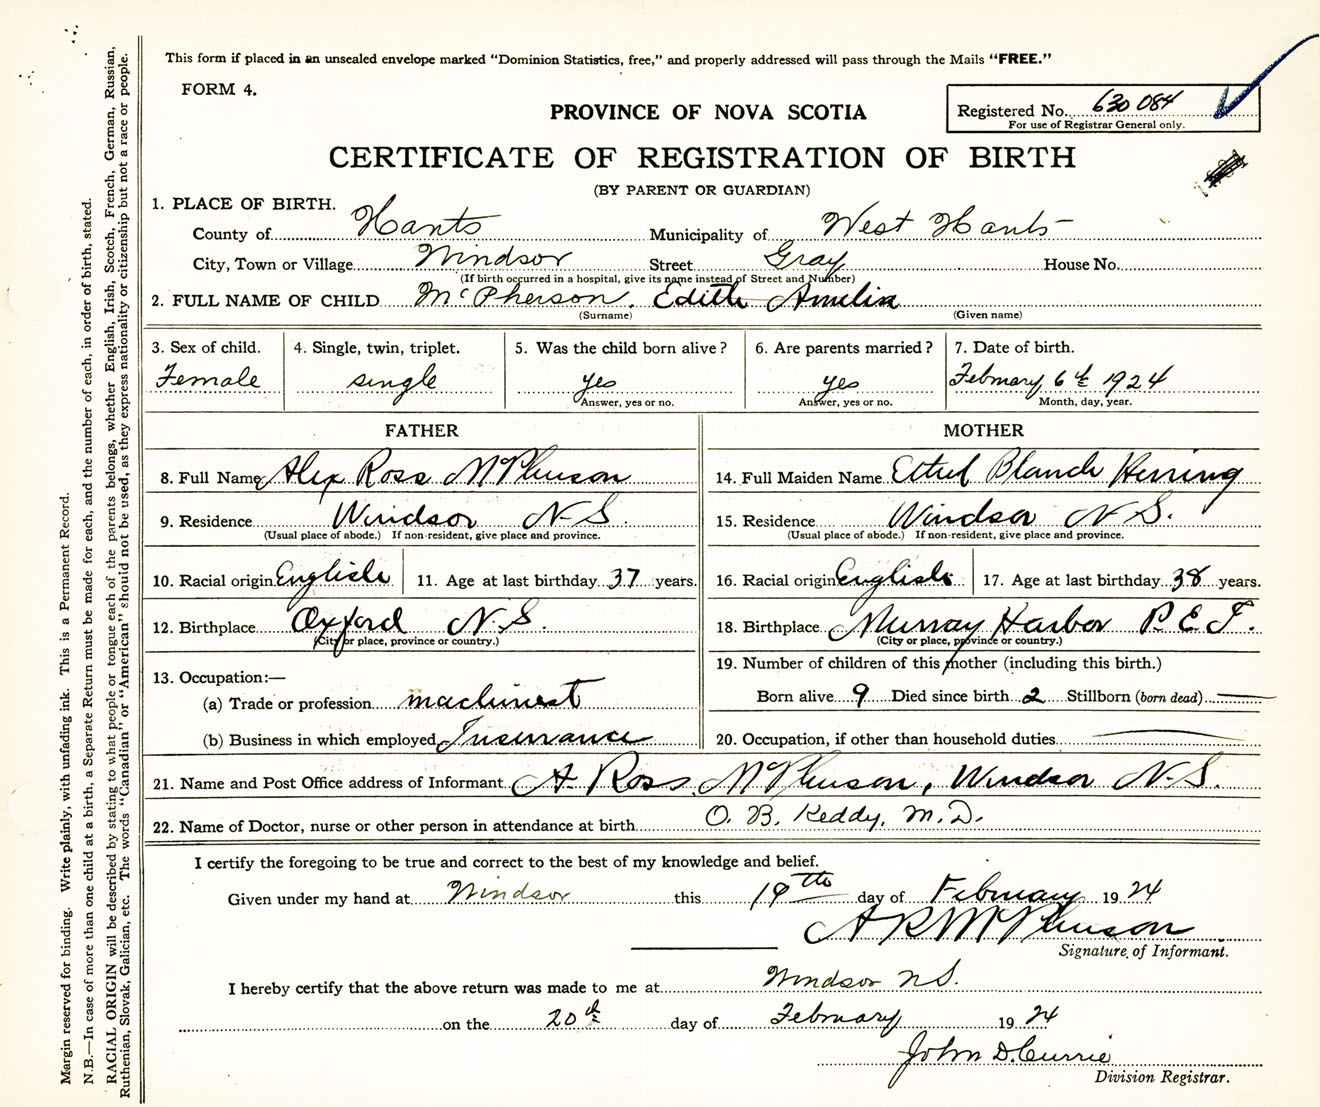 This form if placed in an unsealed envelope marked “Dominion Statistics, free,” and properly addressed will pass through the Mails “FREE.”
FORM 4.
PROVINCE OF NOVA SCOTIA
Registered No. 630 084
For use of Registrar General only.
CERTIFICATE OF REGISTRATION OF BIRTH
(BY PARENT OR GUARDIAN)
1. PLACE OF BIRTH.
County of Hants Municipality of West Hants
City, Town or Village Windsor Street Gray House No.
(If birth occurred in a hospital, give its name instead of Street and Number)
2. FULL NAME OF CHILD McPherson. Edith Amelia
(Surname) (Given name)
3. Sex of child. 4. Single, twin, triplet. 5. Was the child born alive? 6. Are parents married? 7. Date of birth.
Female single yes yes February 6th 1924
Answer, yes or no. Answer, yes or no. Month, day, year.
FATHER MOTHER
8. Full Name Alex Ross McPherson 14. Full Maiden Name Ethel Blanch Herring
9. Residence Windsor N.S. 15. Residence Windsor N.S.
(Usual place of abode.) If non-resident, give place and province. (Usual place of abode.) If non-resident, give place and province.
10. Racial origin English 11. Age at last birthday 37 years. 16. Racial origin English 17. Age at last birthday 38 years.
12. Birthplace Oxford N.S. 18. Birthplace Murray Harbor P.E.I.
(City or place, province or country.) (City or place, province or country.)
19. Number of children of this mother (including this birth.)
13. Occupation:—
(a) Trade or profession machinest Born alive 9 Died since birth 2 Stillborn (born dead)
(b) Business in which employed Insurance 20. Occupation, if other than household duties
21. Name and Post Office address of Informant A. Ross. McPherson, Windsor N.S.
22. Name of Doctor, nurse or other person in attendance at birth O. B. Keddy, M.D.
I certify the foregoing to be true and correct to the best of my knowledge and belief.
Given under my hand at Windsor this 19th day of February 1924
A R McPherson
Signature of Informant.
I hereby certify that the above return was made to me at Windsor N.S.
on the 20th day of February 1924
John D. Currie
Division Registrar.
Margin reserved for binding. Write plainly, with unfading ink. This is a Permanent Record.
N.B.—In case of more than one child at a birth, a Separate Return must be made for each, and the number of each, in order of birth, stated.
RACIAL ORIGIN will be described by stating to what people or tongue each of the parents belongs, whether English, Irish, Scotch, French, German, Russian,
Ruthenian, Slovak, Galician, etc. The words “Canadian” or “American” should not be used, as they express nationality or citizenship but not a race or people.